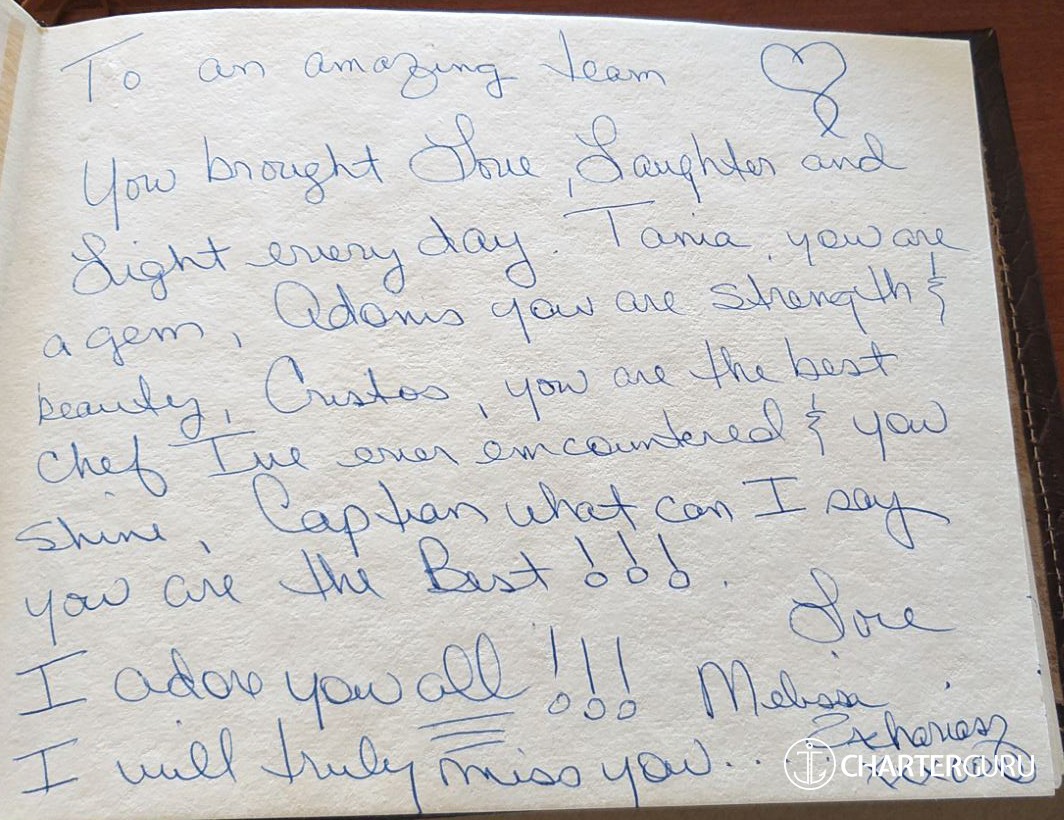 To an amazing team
You brought Love, Laughter and
Light every day. Tania, you are
a gem, Adonis you are strength &
beauty, Cristos, you are the best
chef I've ever encountered & you
shine, Captian what can I say
you are the Best !!!.
Love
I adore you all !!! Melissa
I will truly miss you...
CHARTERGURU